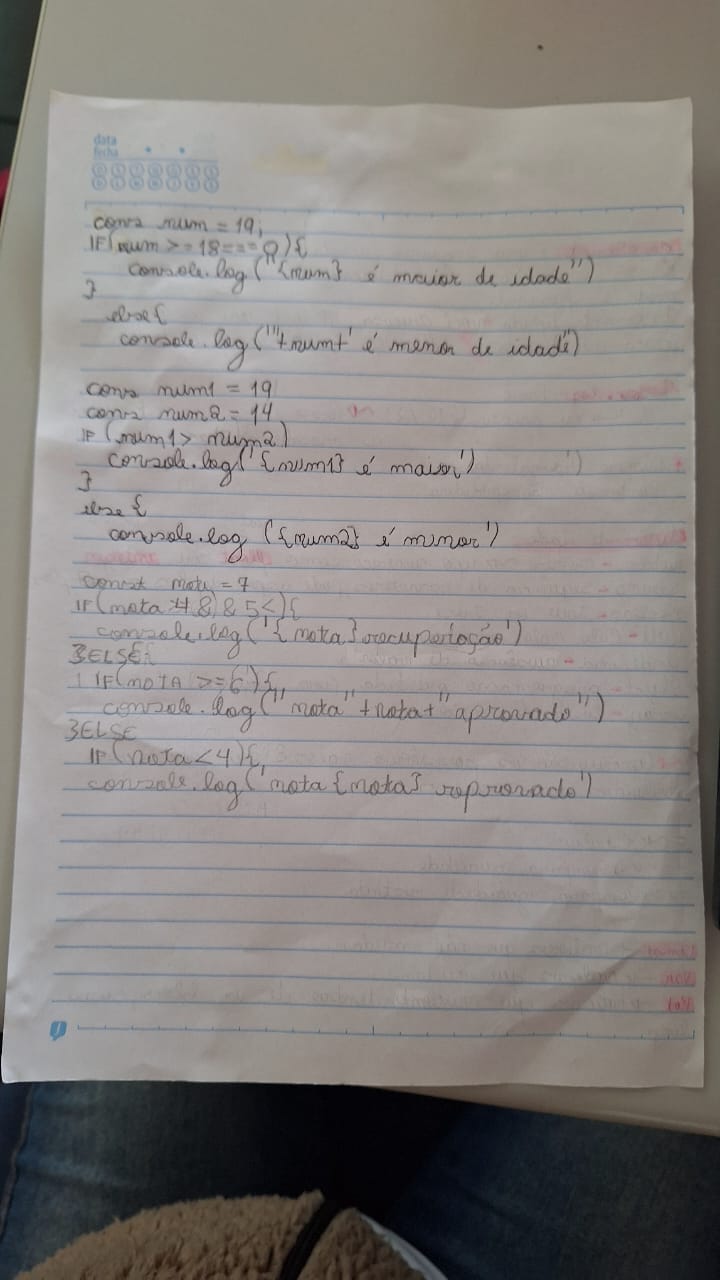 data
fecha
cons num = 19;
IF(num >= 18 === 0){
console.log("{num} é maior de idade")
}
else{
console.log(''+num+' é menor de idade')
cons num1 = 19
cons num2 = 14
IF (num1 > num2)
console.log('{num1} é maior')
}
else {
console.log ({num2} é menor')
const nota = 7
IF(nota & 5<){
console.log('{nota} recuperação')
}ELSE{
IF(NOTA >= 6){
console.log("nota"+nota+"aprovado")
}ELSE
IF(nota<4){
console.log('nota {nota} reprovado')